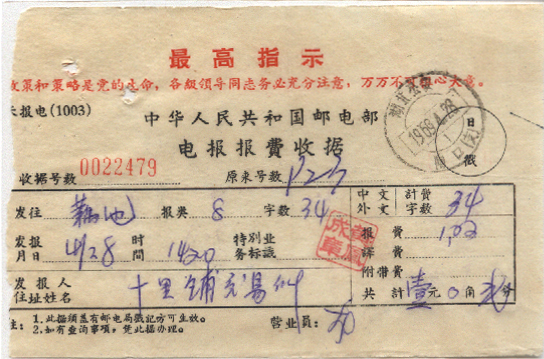 最高指示
政策和策略是党的生命，各级领导同志务必充分注意，万万不可粗心大意。
报电(1003)
中华人民共和国邮电部
电报报费收据
日戳
1968.4.28
收据号数 0022479 原来号数 123
发往 报类 8 字数 34
中文 外文 计费字数 34
发报月日 4/28 时间 1420 特别业务标识
报费 1.02
译费
附带费
发报人住址姓名 十里铺
共计 壹元0角 分
注：1.此据须盖有邮电局戳记方可生效。
2.如有查询事项，凭此据办理。
营业员：